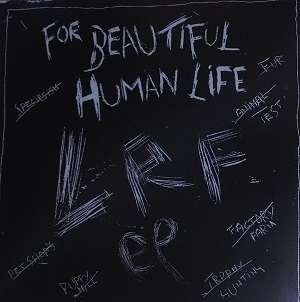 FOR BEAUTIFUL
HUMAN LiFE
SPECIESISM
FUR
ANIMAL
TEST
LRF
eP
PET SHOPS
PUPPY
MILL
FACTORY
FARM
TROPHY
HUNTING